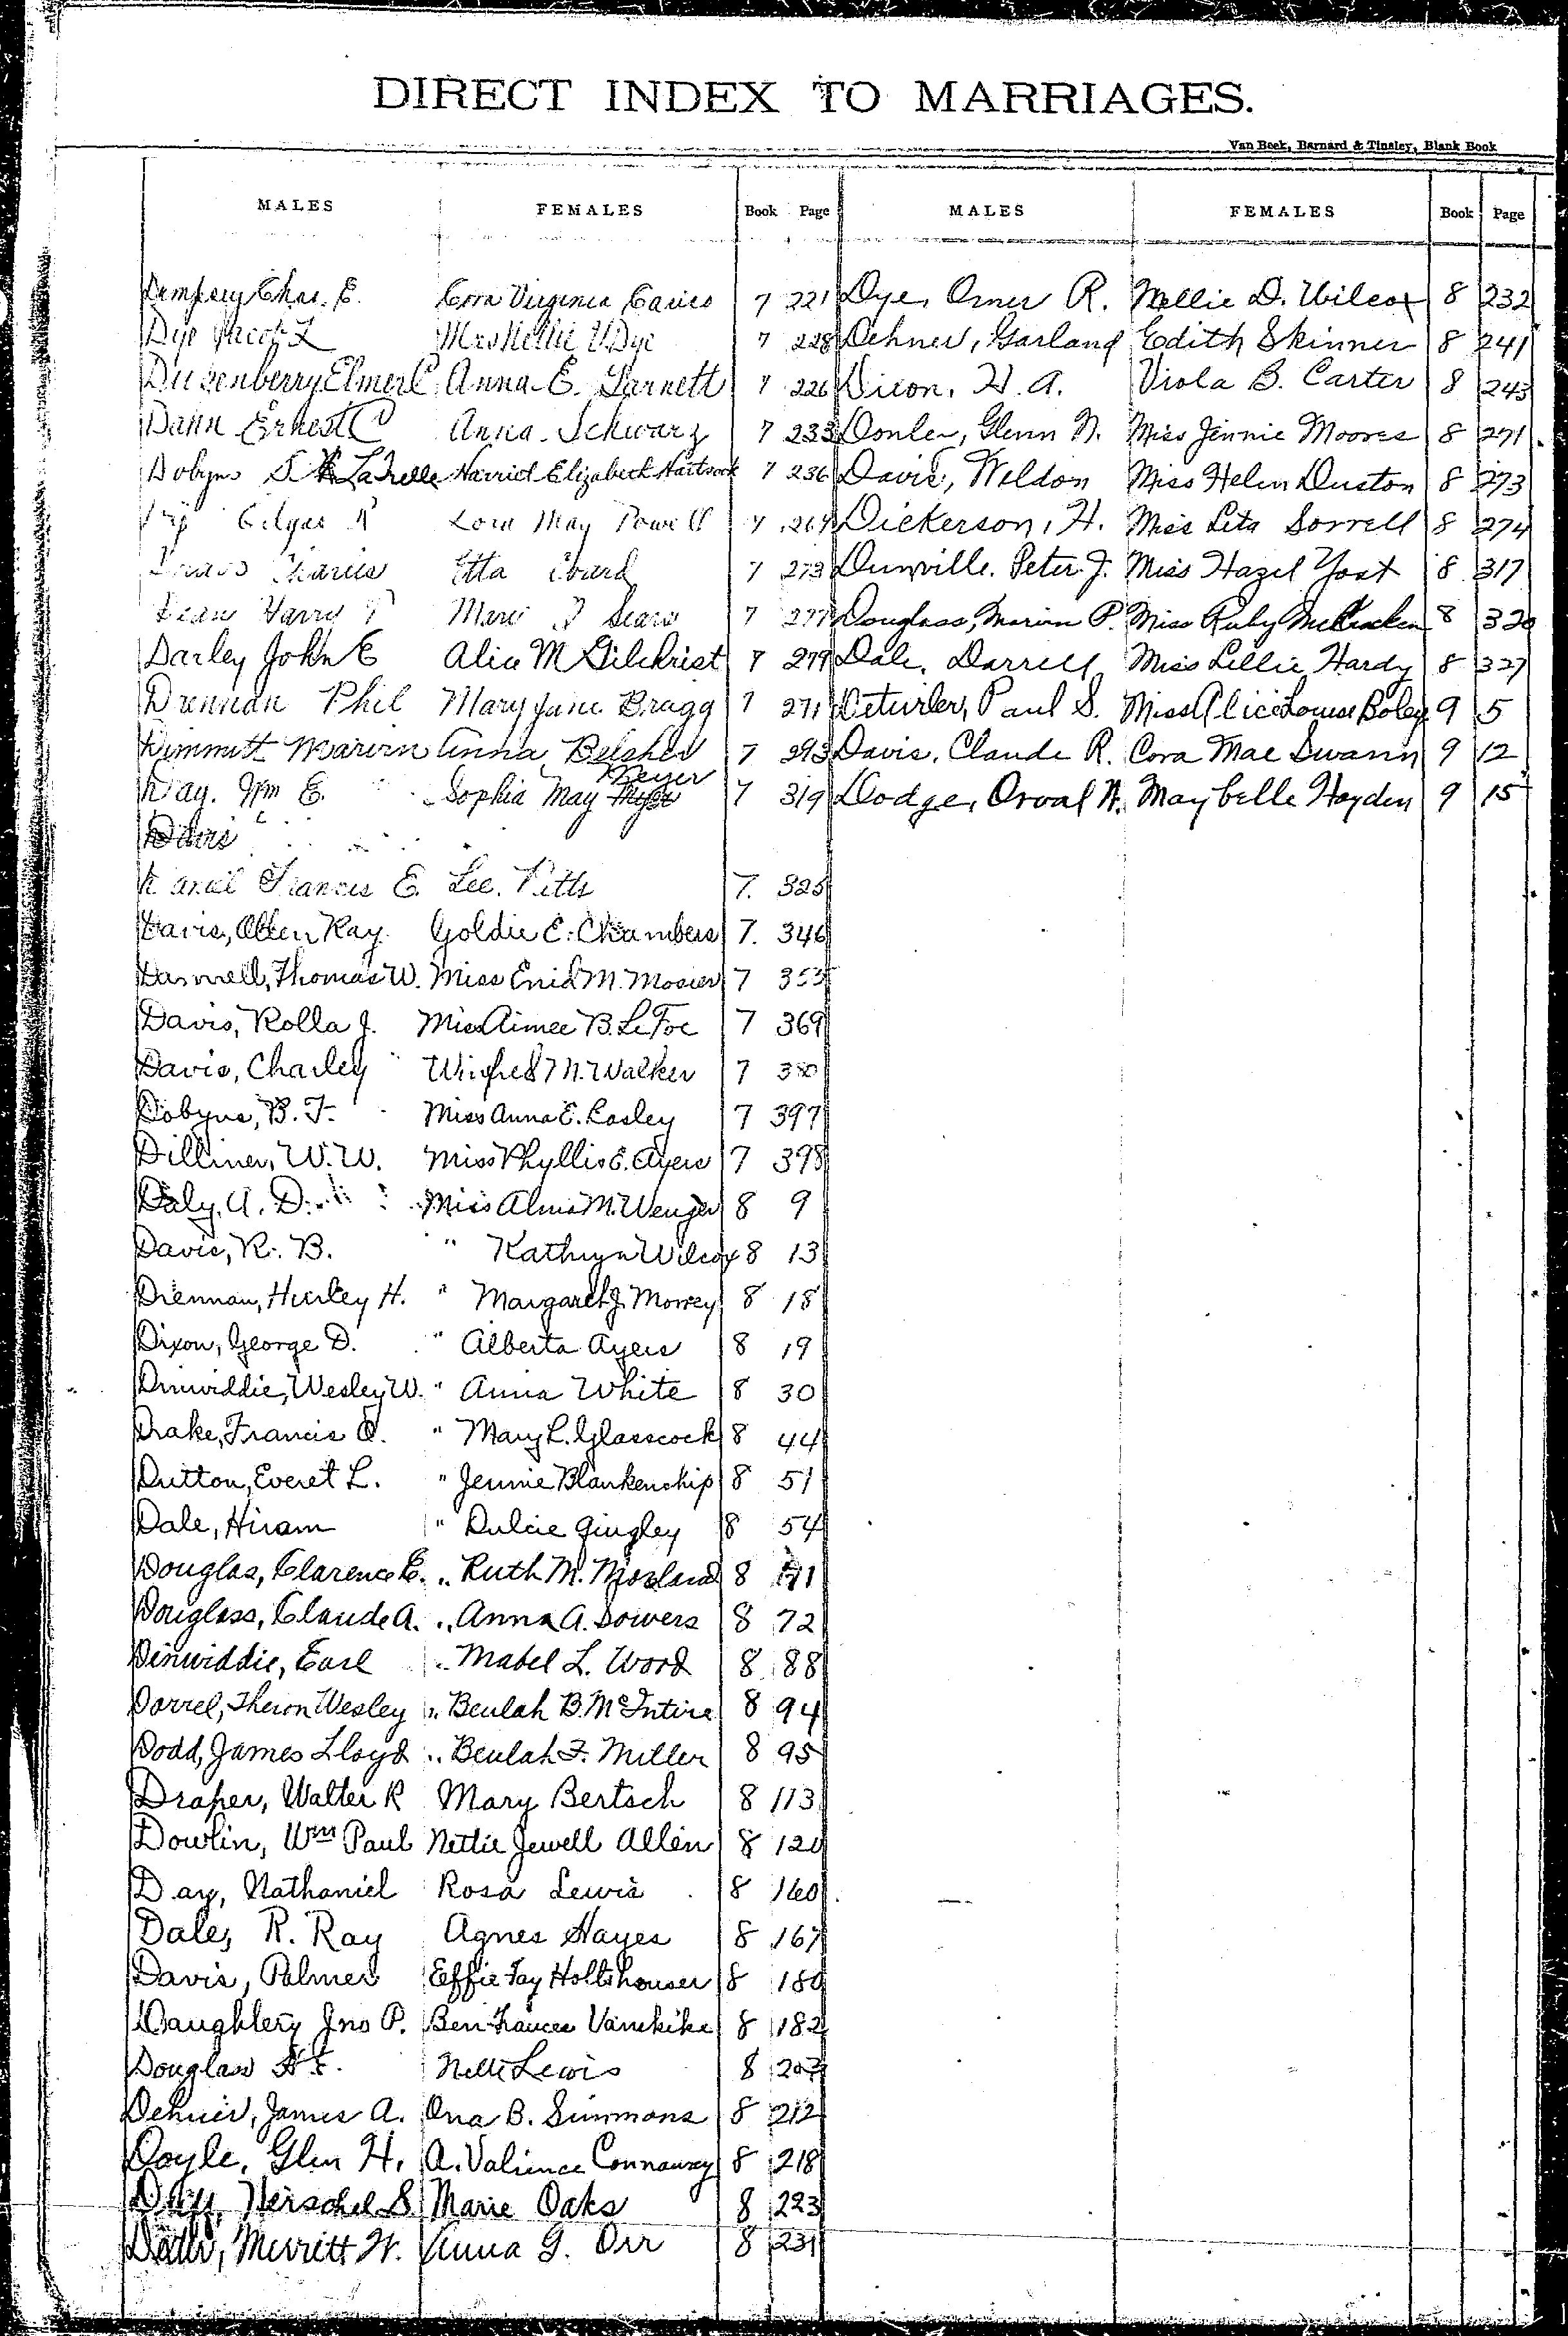 DIRECT INDEX TO MARRIAGES.
Van Beek, Barnard & Tinsley, Blank Book
MALES FEMALES Book Page MALES FEMALES Book Page
Dempsey Chas. E. Cora Virginia 7 221
Dye Jacob L Mrs Nellie V Dye 7 228
Duzenberry Elmer C Anna E. Garnett 7 226
Dann Ernest C Anna Schwarz 7 233
Dobyns LaTrelle Harriet Elizabeth Hartsock 7 236
Lora May Powell 7 267
Charles Etta 7 273
Dean Harry Sears 7 277
Darley John E Alice M Gilchrist 7 279
Drennan Phil Mary Jane Bragg 7 271
Dimmitt Marvin Anna Belsher 7 293
Day. Wm E. Sophia May Meyer 7 319
Davis
Francis E. Lee. Pitts 7. 325
Davis, Allen Ray Goldie E. Chambers 7. 346
Darnell, Thomas W. Miss Enid M. Mosier 7 355
Davis, Rolla J. Miss Aimee B. LeFoe 7 369
Davis, Charley Winifred M. Walker 7 380
Dobyns, B. F. Miss Anna E. Easley 7 397
Dilliner, W. W. Miss Phyllis E. Ayers 7 398
Daly, A. D. Miss Alma M. Wenger 8 9
Davis, R. B. " Kathryn Wilcox 8 13
Drennan, Hurley H. " Margaret J. Morrey 8 18
Dixon, George D. " Alberta Ayers 8 19
Dinwiddie, Wesley W. " Anna White 8 30
Drake, Francis O. " Mary L. Glasscock 8 44
Dutton, Everet L. " Jennie Blankenship 8 51
Dale, Hiram " Dulcie Gingley 8 54
Douglas, Clarence E. " Ruth M. Moreland 8 71
Douglass, Claude A. " Anna A. Sowers 8 72
Dinwiddie, Earl " Mabel L. Wood 8 88
Dorrel, Theron Wesley " Beulah B. McIntire 8 94
Dodd, James Lloyd " Beulah F. Miller 8 95
Draper, Walter R Mary Bertsch 8 113
Dowlin, Wm Paul Nettie Jewell Allen 8 120
Day, Nathaniel Rosa Lewis 8 160
Dale, R. Ray Agnes Hayes 8 167
Davis, Palmer Effie Fay Holtshouser 8 180
Daughtery Jno P. Ben Frances Vanskike 8 182
Douglass Nelle Lewis 8 207
Dehner, James A. Ona B. Simmons 8 212
Doyle, Glen H. A. Valience Connaway 8 218
Herschel S. Marie Oaks 8 223
Merritt W. Anna G. Orr 8 231
Dye, Omer R. Nellie D. Wilcox 8 232
Dehner, Garland Edith Skinner 8 241
Dixon, H. A. Viola B. Carter 8 243
Donley, Glenn N. Miss Jennie Moores 8 271
Davis, Weldon Miss Helen Duston 8 273
Dickerson, H. Miss Leta Sorrell 8 274
Dunville, Peter J. Miss Hazel Yost 8 317
Douglass, Marion P. Miss Ruby McCracken 8 320
Dale, Darrell Miss Lillie Hardy 8 327
Deturler, Paul S. Miss Alice Louise Boley 9 5
Davis, Claude R. Cora Mae Swann 9 12
Dodge, Orval N. Maybelle Hayden 9 15